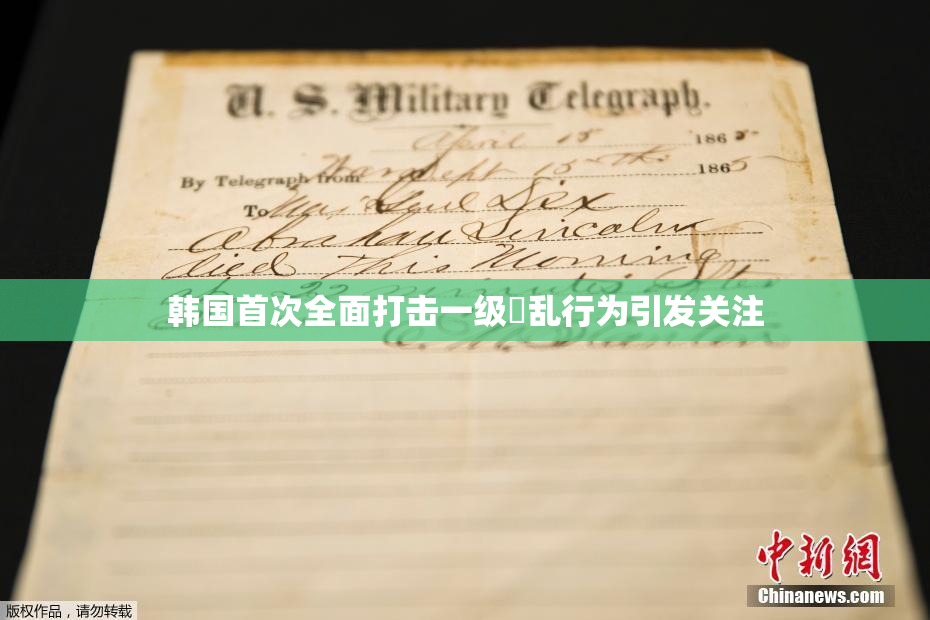 U. S. Military Telegraph.
April 15 1865
By Telegraph from War Dept 15th 1865
To Maj Genl Dix
Abraham Lincoln
died This Morning
at 22 minutes after
韩国首次全面打击一级乱行为引发关注
E. M. Stanton
中新网
Chinanews.com
版权作品，请勿转载